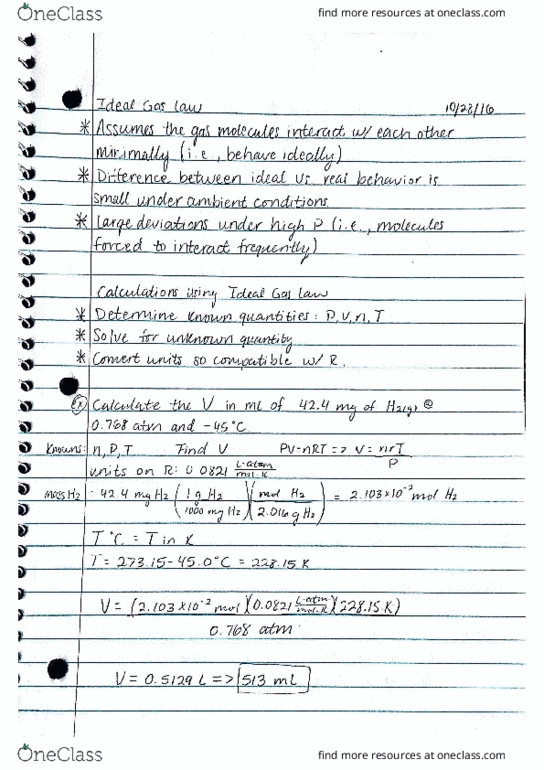 OneClass find more resources at oneclass.com
Ideal Gas law 10/28/16
* Assumes the gas molecules interact w/ each other
minimally (i.e., behave ideally)
* Difference between ideal vs. real behavior is
small under ambient conditions
* Large deviations under high P (i.e., molecules
forced to interact frequently)
Calculations using Ideal Gas law
* Determine known quantities: P, V, n, T
* Solve for unknown quantity
* Convert units so compatible w/ R.
Ex Calculate the V in ml of 42.4 mg of H2(g) @
0.768 atm and -45°C
Knowns: n, P, T Find V PV=nRT => V = nrT/P
units on R: 0.0821 L·atm/mol·K
mass H2 = 42.4 mg H2 (1 g H2/1000 mg H2)(mol H2/2.016 g H2) = 2.103×10⁻² mol H2
T °C = T in K
T = 273.15-45.0°C = 228.15 K
V = (2.103×10⁻² mol)(0.0821 L·atm/mol·K)(228.15 K)
0.768 atm
V = 0.5129 L => 513 ml
OneClass find more resources at oneclass.com